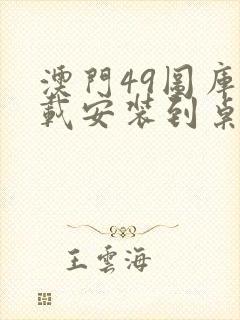 澳門49圖庫
載安裝到桌
王雲海